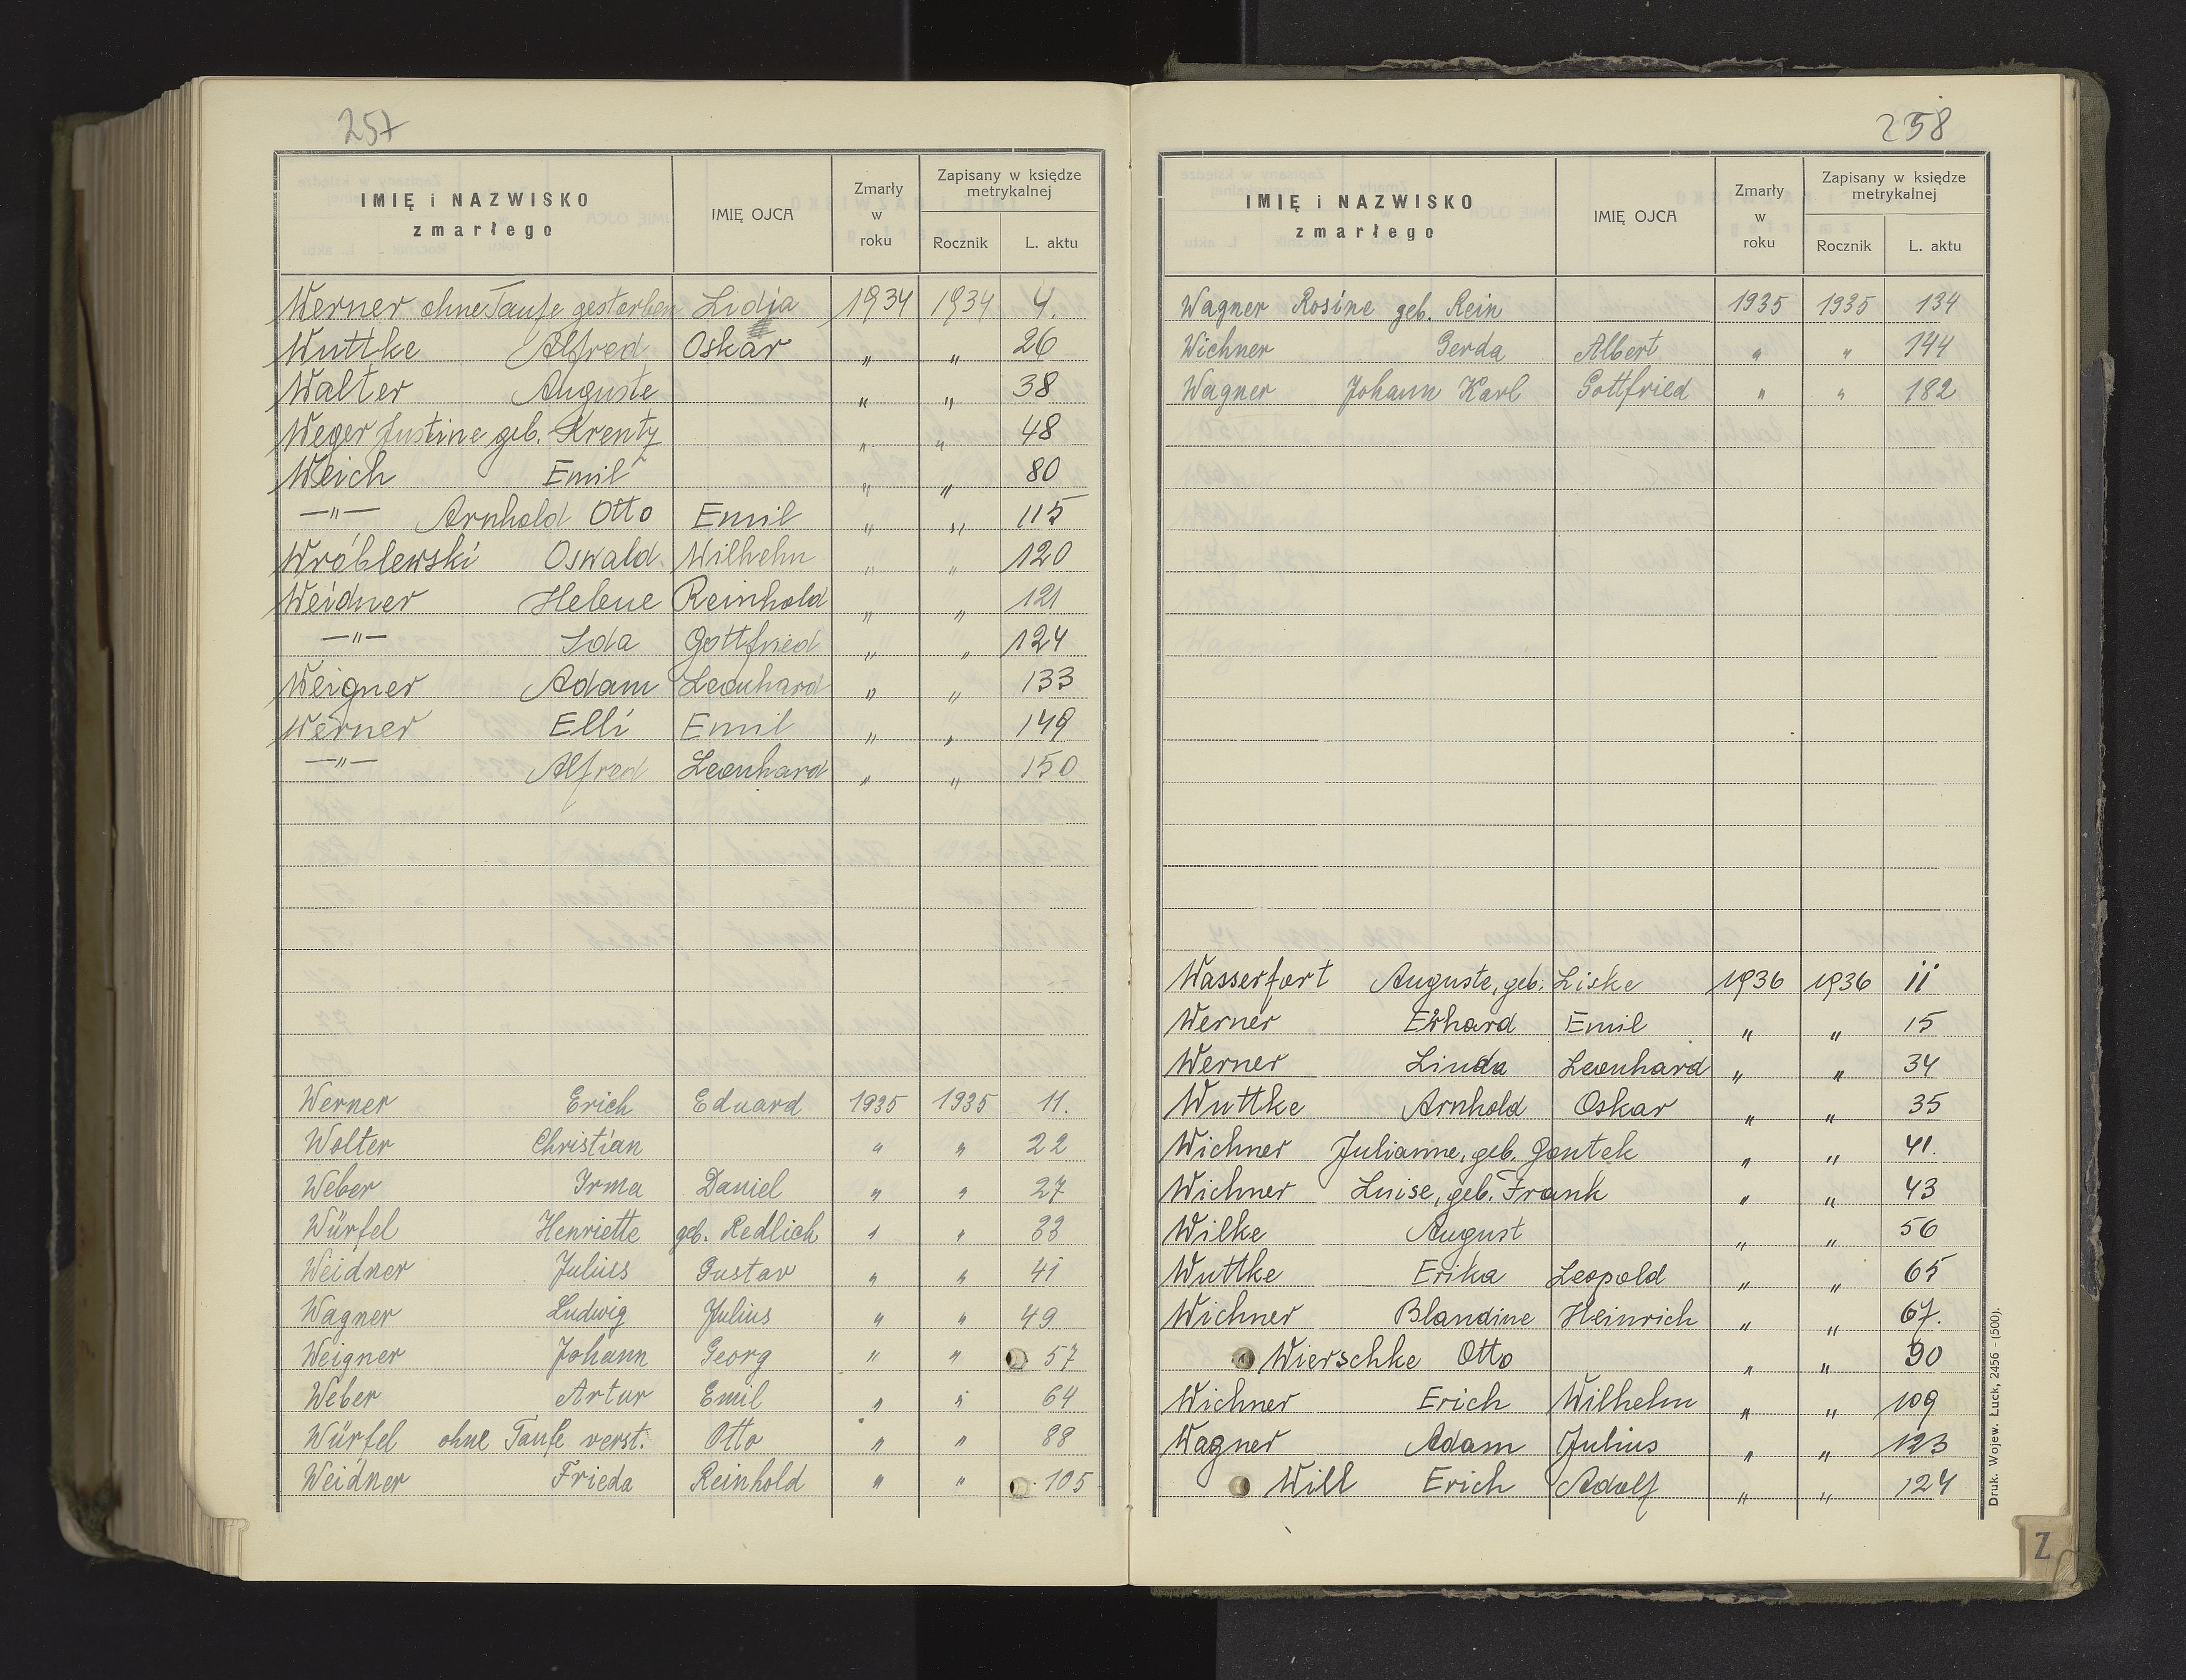 257
IMIĘ i NAZWISKO zmarłego IMIĘ OJCA Zmarły w roku Zapisany w księdze metrykalnej Rocznik L. aktu
Werner ohne Taufe gestorben Lidja 1934 1934 4.
Wuttke Alfred Oskar " " 26
Walter Auguste " " 38
Weger Justine geb. Krentz " " 48
Weich Emil " " 80
—"— Arnhold Otto Emil " " 115
Wróblewski Oswald Wilhelm " " 120
Weidner Helene Reinhold " " 121
—"— Ida Gottfried " " 124
Weigner Adam Leonhard " " 133
Werner Elli Emil " " 149
—"— Alfred Leonhard " " 150
Werner Erich Eduard 1935 1935 11.
Wolter Christian " " 22
Weber Irma Daniel " " 27
Würfel Henriette geb. Redlich " " 33
Weidner Julius Gustav " " 41
Wagner Ludwig Julius " " 49
Weigner Johann Georg " " 57
Weber Artur Emil " " 64
Würfel ohne Taufe verst. Otto " " 88
Weidner Frieda Reinhold " " 105
258
IMIĘ i NAZWISKO zmarłego IMIĘ OJCA Zmarły w roku Zapisany w księdze metrykalnej Rocznik L. aktu
Wagner Rosine geb. Rein 1935 1935 134
Wichner Gerda Albert " " 144
Wagner Johann Karl Gottfried " " 182
Wasserfort Auguste, geb. Liske 1936 1936 11
Werner Erhard Emil " " 15
Werner Linda Leonhard " " 34
Wuttke Arnhold Oskar " " 35
Wichner Julianne, geb. Gontek " " 41.
Wichner Luise, geb. Frank " " 43
Wilke August " " 56
Wuttke Erika Leopold " " 65
Wichner Blandine Heinrich " " 67.
Wierschke Otto " " 90
Wichner Erich Wilhelm " " 109
Wagner Adam Julius " " 123
Will Erich Adolf " " 124
Druk. Wojew. Łuck, 2456 - (500).
Z